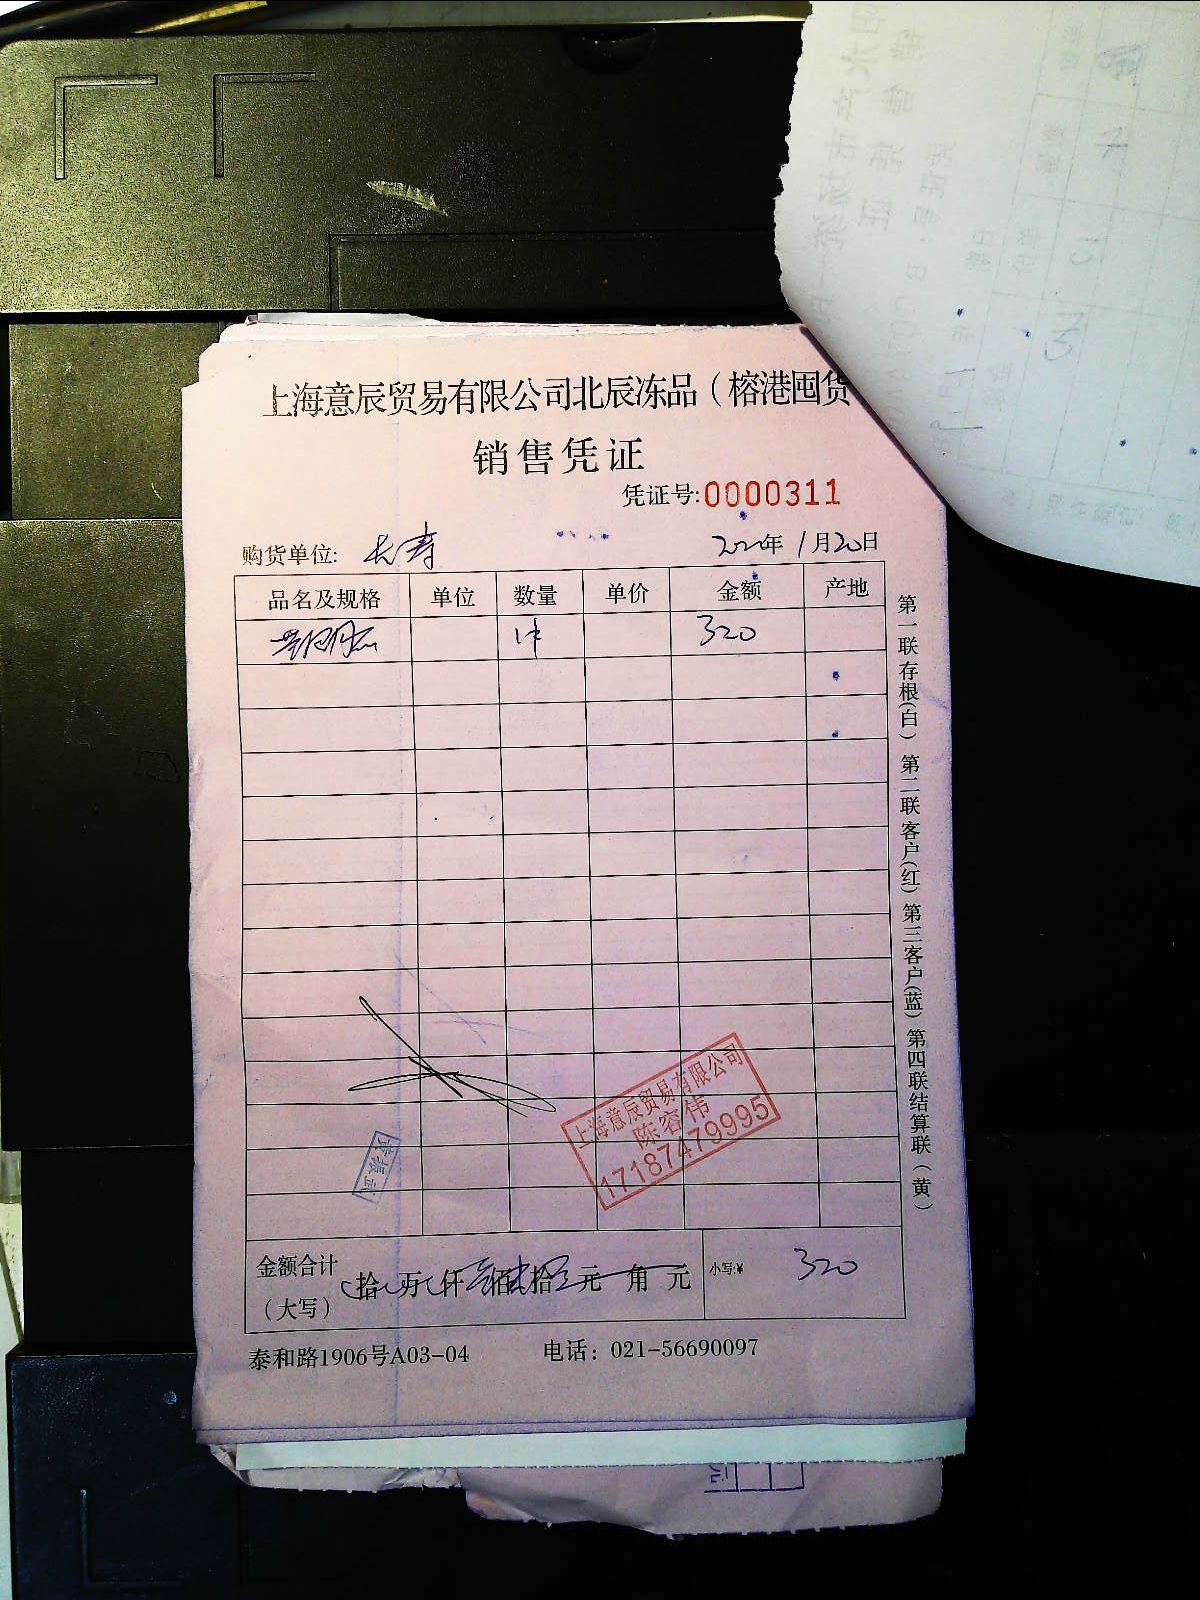 上海意辰贸易有限公司北辰冻品（榕港囤货
销售凭证
凭证号:0000311
购货单位: 长寿 年1月20日
品名及规格 单位 数量 单价 金额 产地
1件 320
上海意辰贸易有限公司
陈容伟
17187479995
金额合计
（大写） 拾 万 仟 佰 拾 元 角 元 小写:¥ 320
泰和路1906号A03-04 电话：021-56690097
第一联存根(白) 第二联客户(红) 第三客户(蓝) 第四联结算联(黄)